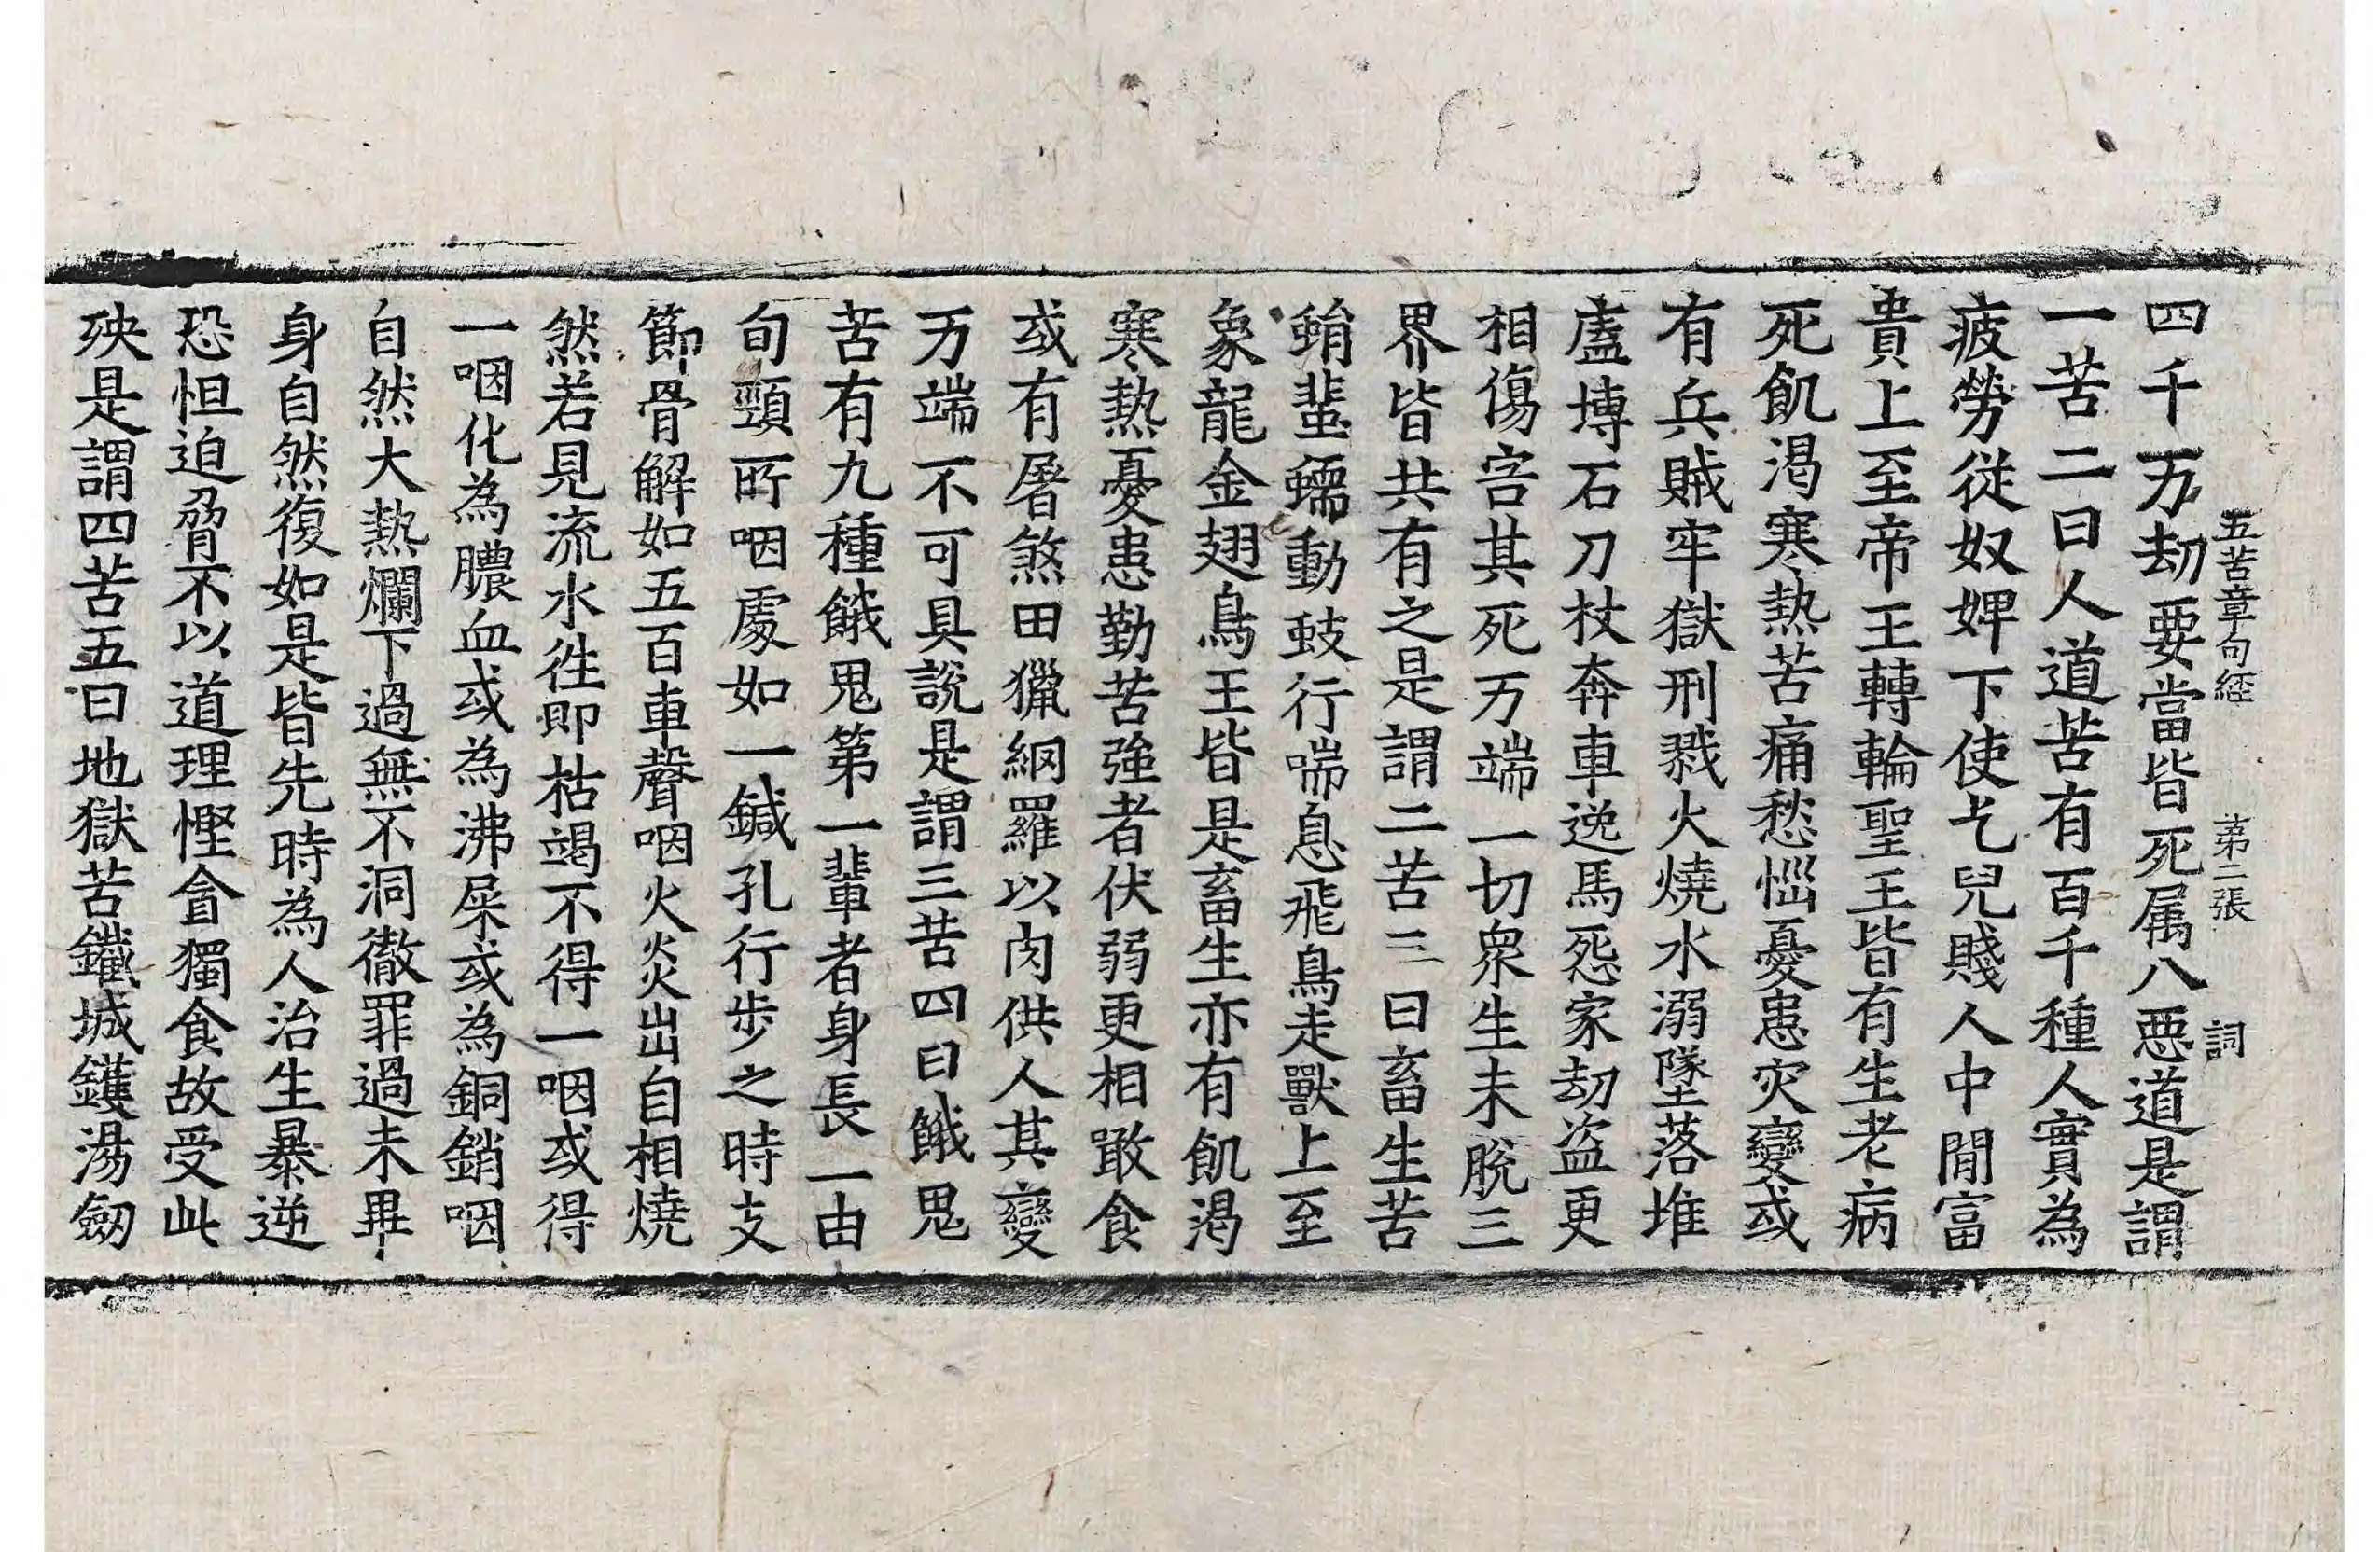 五苦章句經　第二張　詞
四千万劫要當皆死属八惡道是謂
一苦二曰人道苦有百千種人實為
疲勞從奴婢下使乞兒賤人中間富
貴上至帝王轉輪聖王皆有生老病
死飢渴寒熱苦痛愁惱憂患灾變或
有兵賊牢獄刑戮火燒水溺墜落堆
盧塼石刀杖奔車逸馬怨家劫盜更
相傷害其死万端一切衆生未脫三
界皆共有之是謂二苦三曰畜生苦
蜎蜚蠕動蚑行喘息飛鳥走獸上至
象龍金翅鳥王皆是畜生亦有飢渴
寒熱憂患勤苦強者伏弱更相噉食
或有屠煞田獵網羅以肉供人其變
万端不可具說是謂三苦四曰餓鬼
苦有九種餓鬼第一輩者身長一由
旬頸所咽處如一鍼孔行步之時支
節骨解如五百車聲咽火炎出自相燒
然若見流水往即枯竭不得一咽或得
一咽化為膿血或為沸屎或為銅銷咽
自然大熱爛下過無不洞徹罪過未畢
身自然復如是皆先時為人治生暴逆
恐怛迫脅不以道理慳貪獨食故受此
殃是謂四苦五曰地獄苦鐵城鑊湯劒